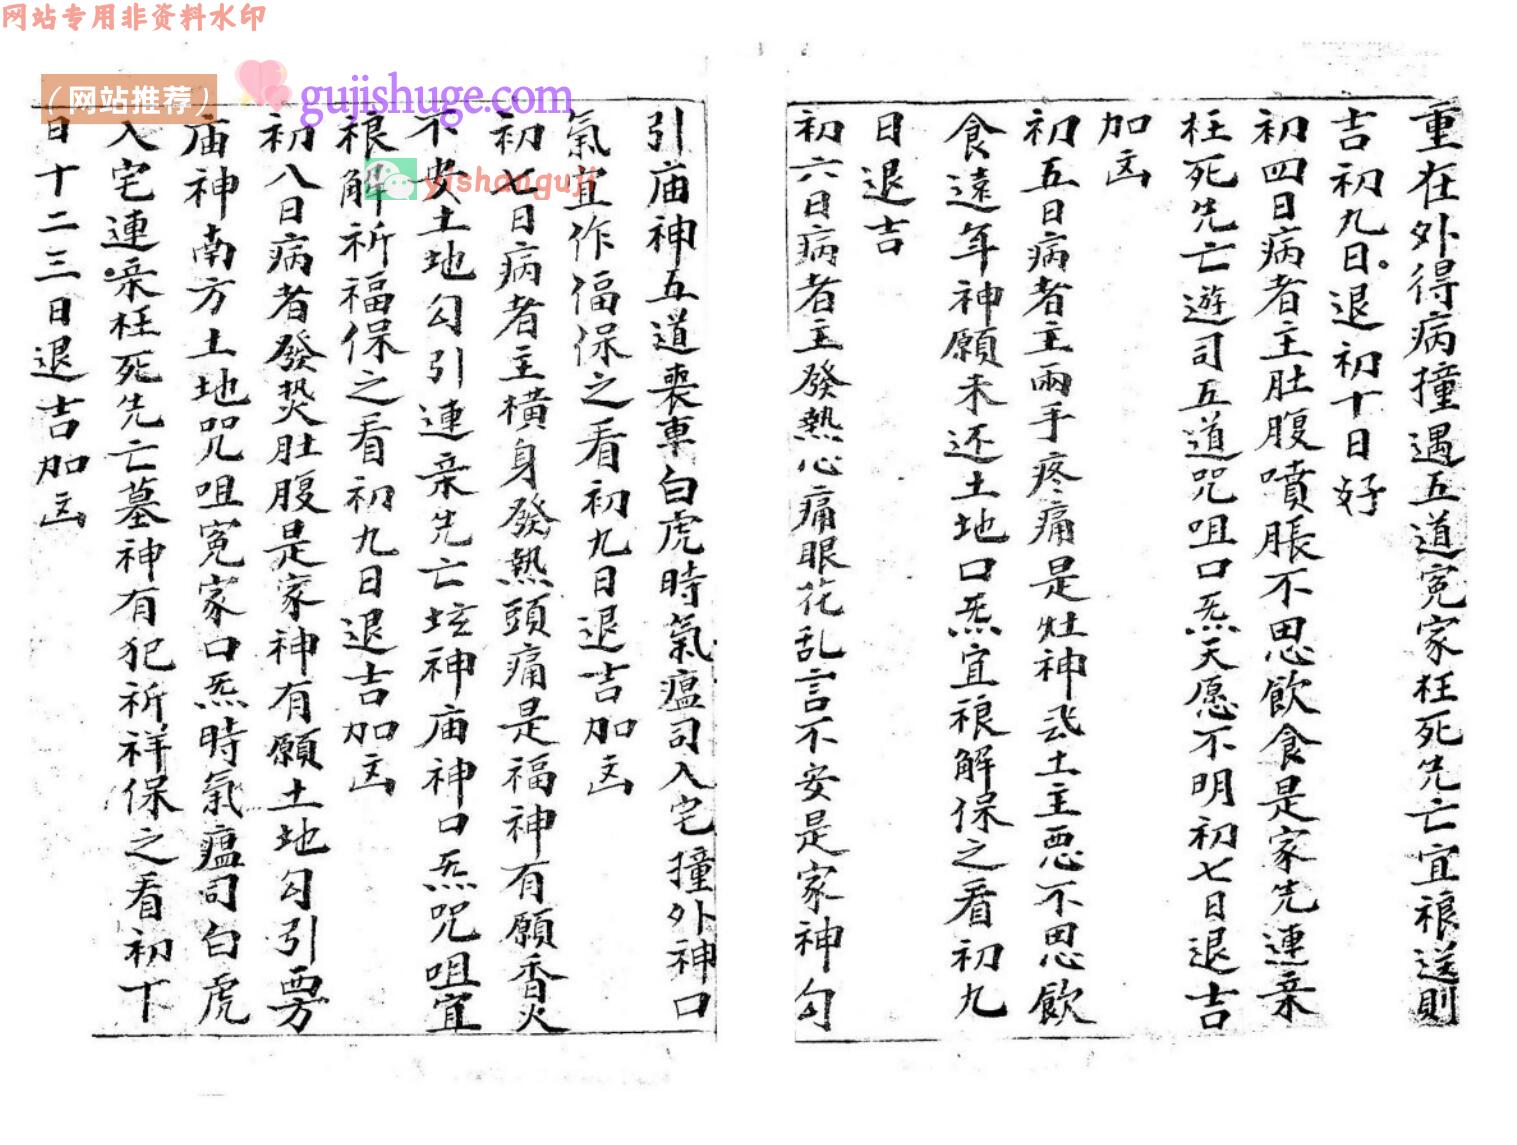 网站专用非资料水印
(网站推荐)
gujishuge.com
yishanguji
重在外得病撞遇五道冤家枉死先亡宜禳送則
吉初九日退初十日好
初四日病者主肚腹噴脹不思飲食是家先連亲
枉死先亡遊司五道咒咀口炁天愿不明初七日退吉
加凶
初五日病者主兩手疼痛是灶神土主惡不思飲
食遠年神願未还土地口炁宜禳解保之看初九
日退吉
初六日病者主發熱心痛眼花乱言不安是家神勾
引庙神五道喪車白虎時氣瘟司入宅撞外神口
氣宜作福保之看初九日退吉加凶
初七日病者主横身發熱頭痛是福神有願香火
不安土地勾引連亲先亡坟神庙神口炁咒咀宜
禳解祈福保之看初九日退吉加凶
初八日病者發焚肚腹是家神有願土地勾引西方
庙神南方土地咒咀冤家口炁時氣瘟司白虎
入宅連亲枉死先亡墓神有犯祈祥保之看初下
日十二三日退吉加凶